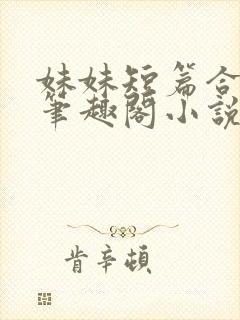 妹妹短篇合
筆趣閣小說
肯辛頓